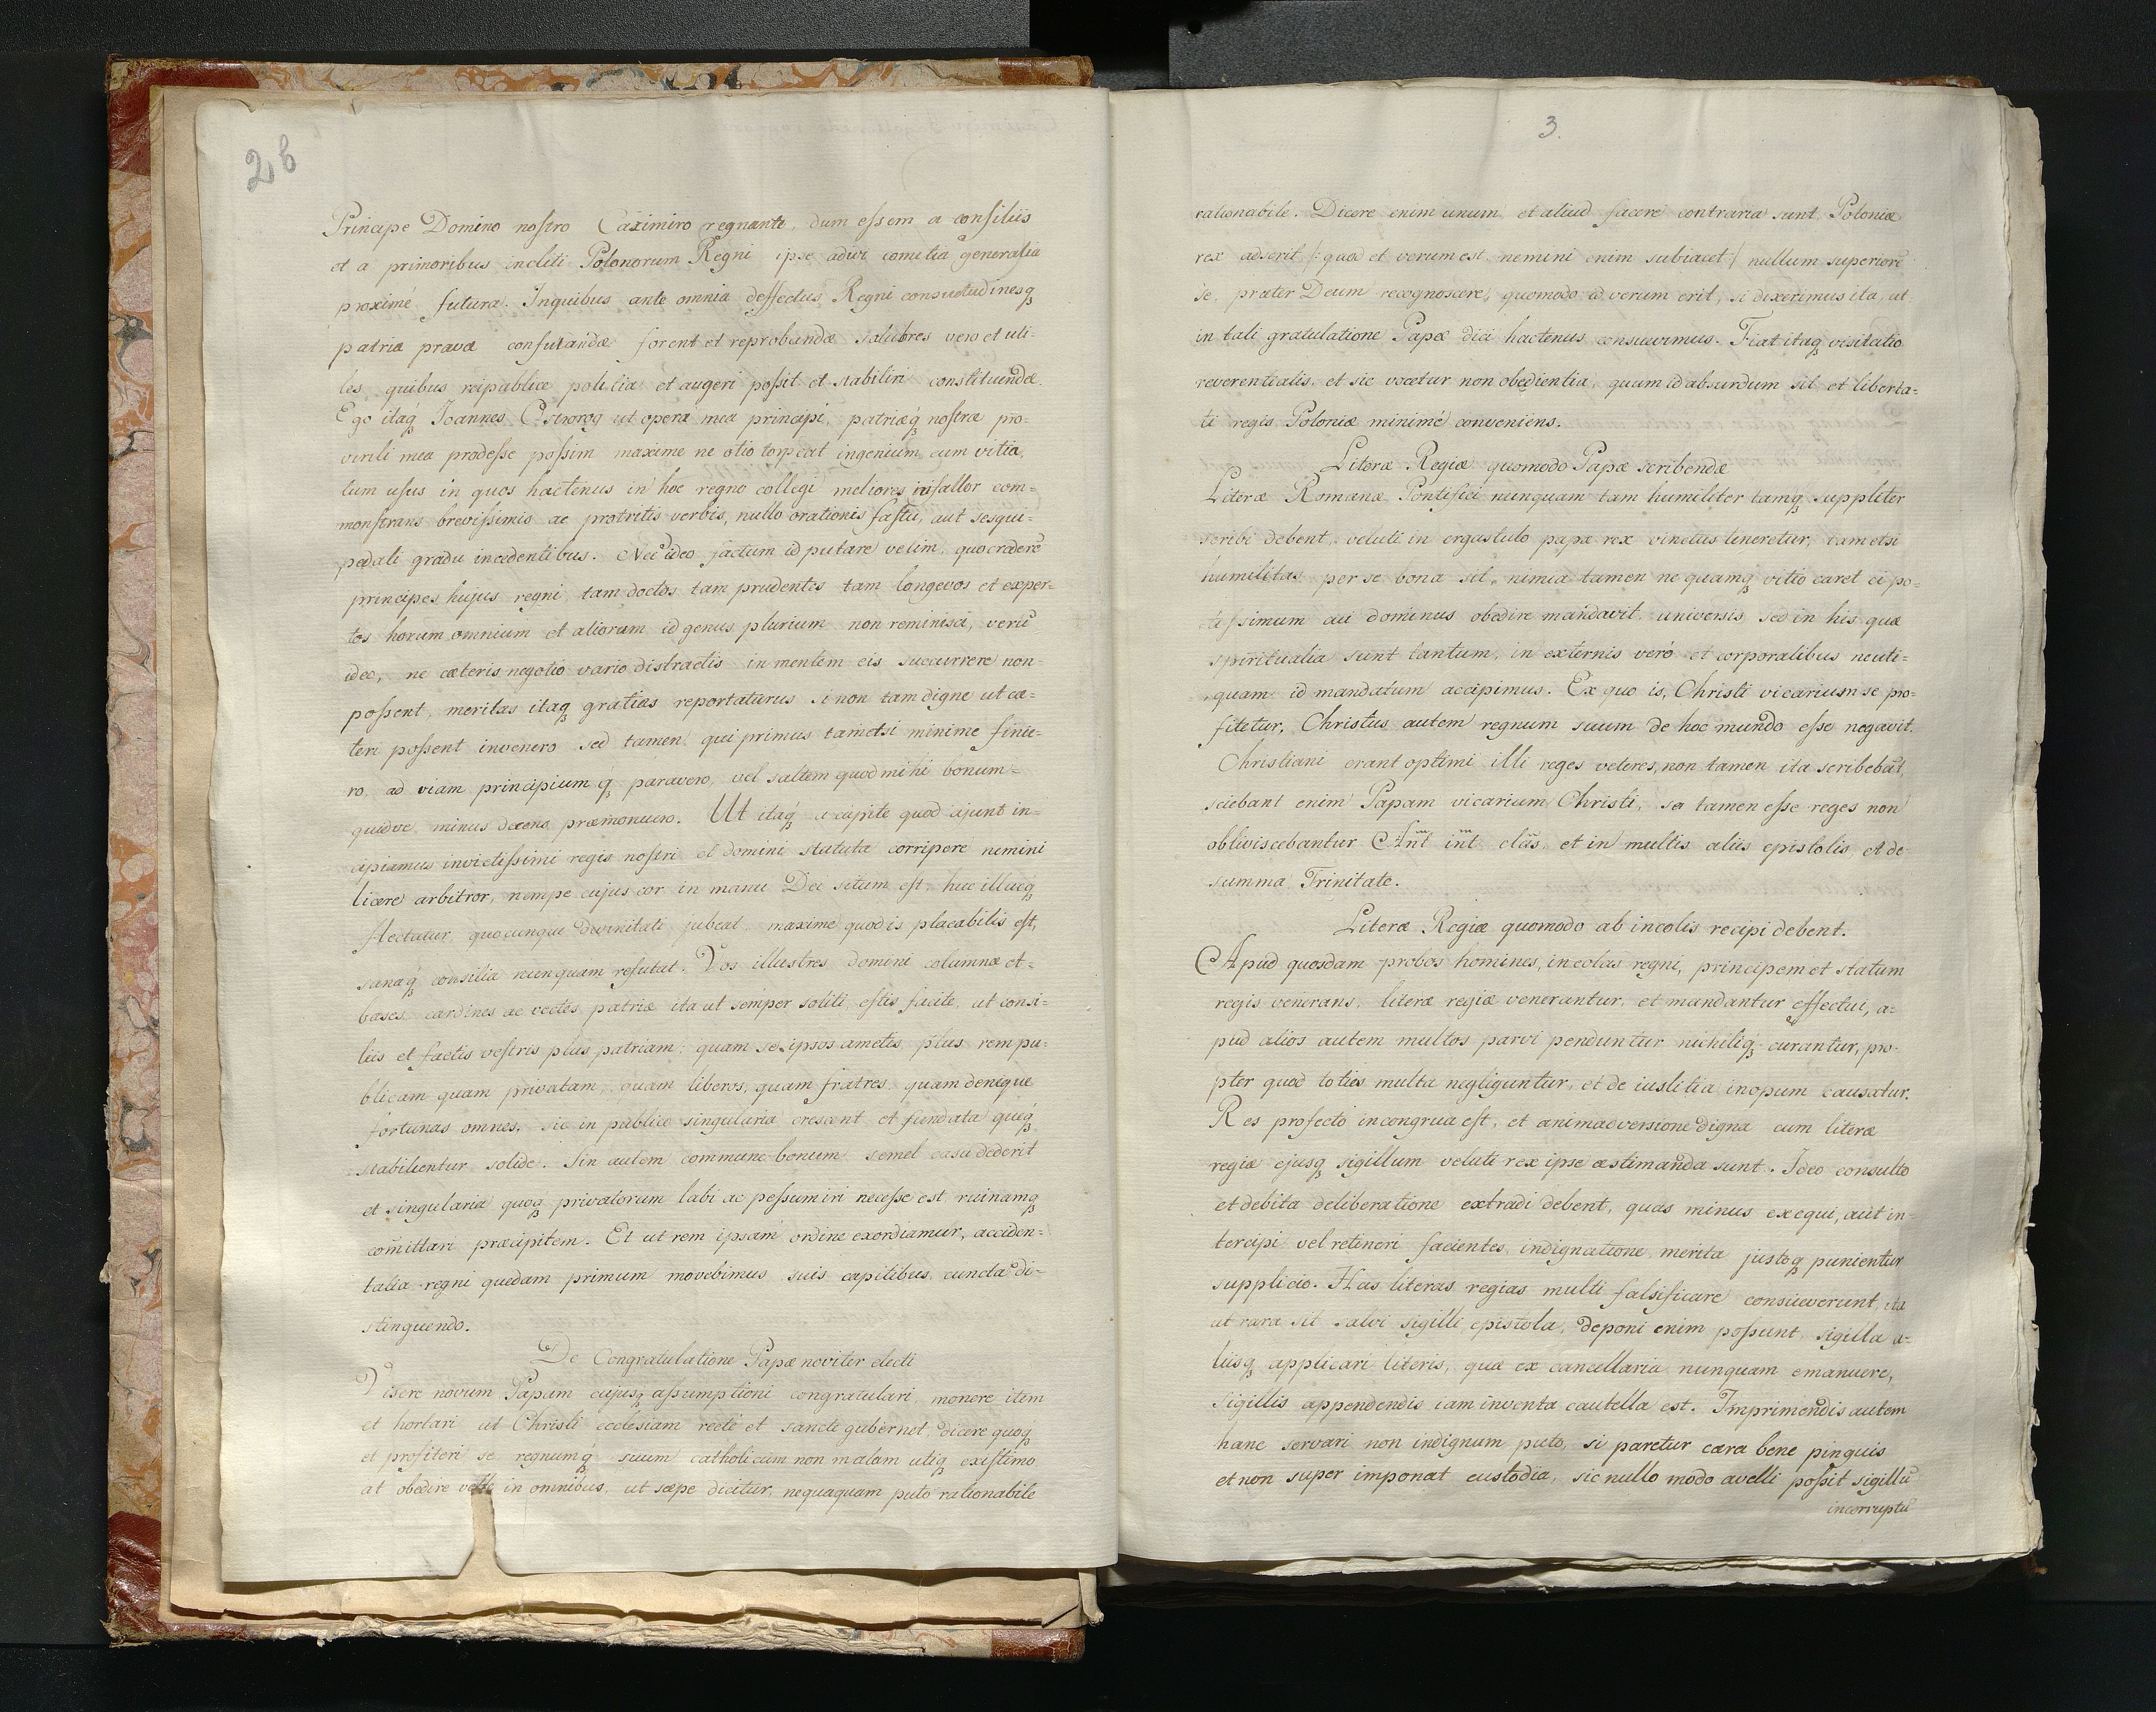 2b
Principe Domino nostro Casimiro regnante, dum essem a consiliis
et a primoribus incliti Polonorum Regni ipse adivi comitia generalia
proximé futura. Inquibus ante omnia deffectus Regni consuetudinesq
patriæ pravæ confutandæ forent et reprobandæ salubres vero et uti-
les quibus reipublice policiæ et augeri possit et stabiliri constituendæ.
Ego itaq Joannes Ostrorog ut opera mea principi, patriæq nostræ pro-
virili mea prodesse possim maxime ne otio torpeat ingenium, cum vitia,
tum usus in quos hactenus in hoc regno collegi meliores nifallor com=
monstrans brevissimis ac protritis verbis, nullo orationis fastu, aut sesqui=
pedali gradu incedentibus. Nec ideo factum id putare velim, quo crederē
principes hujus regni, tam doctos tam prudentes tam longevos et exper=
tos horum omnium et aliorum id genus plurium non reminisci, verū
ideo, ne cæteris negotio vario distractis in mentem eis succurrere non-
possent, meritas itaq gratias reportaturus si non tam digne ut cæ=
teri possent invenero sed tamen qui primus tametsi minime finie-
ro, ad viam principium q paravero, vel saltem quod mihi bonum=
quidve minus decens præmonuero. Ut itaq a capite quod ajunt in=
cipiamus invictissimi regis nostri et domini statuta corripere nemini
licere arbitror, nempe cujus cor in manu Dei situm est, huc illucq
flectatur quocunque divinitati jubeat maxime quod is placabilis est,
sanaq consilia nunquam refutat. Vos illustres domini columnæ et=
bases cardines ac vectes patriæ ita ut semper soliti estis facite, ut consi=
liis et factis vestris plus patriam; quam se ipsos ametis plus rem pu=
blicam quam privatam, quam liberos, quam fratres quam denique
fortunas omnes, sic in publico singularia crescent et fundata queq
stabilientur solide. Sin autem commune bonum semel casu dederit
et singularia quoq privatorum labi ac pessumiri necesse est ruinamq
com̃ittari præcipitem. Et ut rem ipsam ordine exordiamur, acciden=
talia regni quedam primum movebimus suis capitibus cuncta di=
stinguendo.
De Congratulatione Papæ noviter electi
Visere novum Papam cujusq assumptioni congratulari, monere item
et hortari ut Christi ecclesiam recté et sancte gubernet, dicere quoq
et profiteri se regnumq suum catholicum non malum utiq existimo
at obedire velle in omnibus, ut sæpe dicitur, nequaquam puto rationabile
3.
rationabile. Dicere enim unum et aliud facere contraria sunt. Poloniæ
rex adserit /: quod et verum est, nemini enim subiacet / nullum superiorē
se, præter Deum recognoscere, quomodo id verum erit, si dixerimus ita, ut
in tali gratulatione Papæ dici hactenus consuevimus. Fiat itaq visitatio
reverentialis, et sic vocetur non obedientia, quam id absurdum sit et liberta=
ti regis Poloniæ minimé conveniens.
Literæ Regiæ quomodo Papæ scribendæ
Literæ Romanæ Pontifici nunquam tam humiliter tamq suppliter
scribi debent, veluti in ergastulo papæ rex vinctus teneretur, tametsi
humilitas per se bona sit, nimia tamen ne quamq vitio caret ei po=
tissimum cui dominus obedire mandavit universis sed in his quæ
spiritualia sunt tantum, in externis veró et corporalibus neuti=
quam id mandatum accipimus. Ex quo is, Christi vicarium se pro=
fitetur, Christus autem regnum suum de hoc mundo esse negavit.
Christiani erant optimi illi reges veteres, non tamen ita scribebāt,
sciebant enim Papam vicarium Christi, se tamen esse reges non
obliviscebantur Ant int clas et in multis aliis epistolis, et de
summa Trinitate.
Literæ Regiæ quomodo ab incolis recipi debent.
Apud quosdam probos homines, incolas regni, principem et statum
regis venerans, literæ regiæ venerantur, et mandantur effectui, a=
pud alios autem multos parvi penduntur nichiliq curantur, pro-
pter quod toties multa negliguntur, et de iustitia inopum causatur.
Res profecto incongrua est, et animadversione digna cum literæ
regiæ ejusq sigillum veluti rex ipse æstimanda sunt. Ideo consulto
et debita deliberatione extradi debent, quas minus exequi, aut in=
tercipi vel retineri facientes indignatione merita justoq punientur
supplicio. Has literas regias multi falsificare consueverunt, ita
ut rara sit salvi sigilli epistola, deponi enim possunt sigilla a=
liisq applicari literis, quæ ex cancellaria nunquam emanuere,
Sigillis appendendis iam inventa cautella est. Imprimendis autem
hanc servari non indignum puto, si paretur cæra bene pinguis
et non super imponat custodia, sic nullo modo avelli possit sigillū
incorruptū